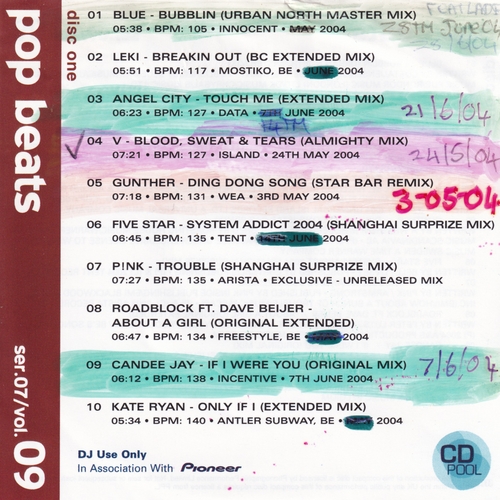 pop beats
ser.07/vol.09
disc one
01 BLUE - BUBBLIN (URBAN NORTH MASTER MIX)
05:38 • BPM: 105 • INNOCENT • MAY 2004
28TH June 04
02 LEKI - BREAKIN OUT (BC EXTENDED MIX)
05:51 • BPM: 117 • MOSTIKO, BE • JUNE 2004
03 ANGEL CITY - TOUCH ME (EXTENDED MIX)
06:23 • BPM: 127 • DATA • 7TH JUNE 2004
14TH
21/6/04
04 V - BLOOD, SWEAT & TEARS (ALMIGHTY MIX)
07:21 • BPM: 127 • ISLAND • 24TH MAY 2004
24/5/04
05 GUNTHER - DING DONG SONG (STAR BAR REMIX)
07:18 • BPM: 131 • WEA • 3RD MAY 2004
3-05-04
06 FIVE STAR - SYSTEM ADDICT 2004 (SHANGHAI SURPRIZE MIX)
06:45 • BPM: 135 • TENT • 14TH JUNE 2004
07 P!NK - TROUBLE (SHANGHAI SURPRIZE MIX)
07:27 • BPM: 135 • ARISTA • EXCLUSIVE - UNRELEASED MIX
08 ROADBLOCK FT. DAVE BEIJER -
ABOUT A GIRL (ORIGINAL EXTENDED)
06:47 • BPM: 134 • FREESTYLE, BE • 2004
09 CANDEE JAY - IF I WERE YOU (ORIGINAL MIX)
06:12 • BPM: 138 • INCENTIVE • 7TH JUNE 2004
7/6/04
10 KATE RYAN - ONLY IF I (EXTENDED MIX)
05:34 • BPM: 140 • ANTLER SUBWAY, BE • 2004
DJ Use Only
In Association With Pioneer
CD
POOL